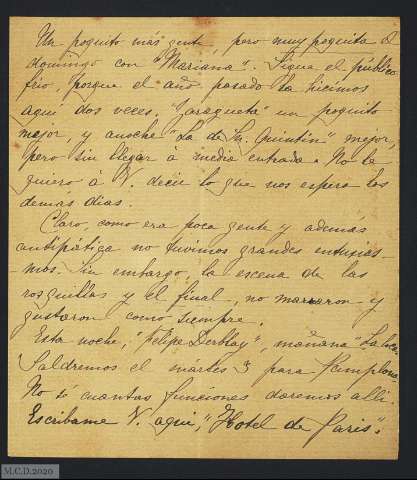 Un poquito más gente, pero muy poquita el
domingo con "Mariana". Sigue el público
frío, porque el año pasado la hicimos
aquí dos veces. "Zaragueta" un poquito
mejor, y anoche "La de Sn. Quintín" mejor,
pero sin llegar á media entrada. No le
quiero á V. decir lo que nos espera los
demas dias.
Claro, como era poca gente y además
antipática no tuvimos grandes entusias-
-mos. Sin embargo, la escena de las
rosquillas y el final, no y
gustaron como siempre.
Esta noche, "Felipe Derblay", mañana
Saldremos el mártes 3 para Pamplona.
No sé cuantas funciones daremos allí.
Escribame V. aquí, "Hotel de Paris".
M.C.D.2020